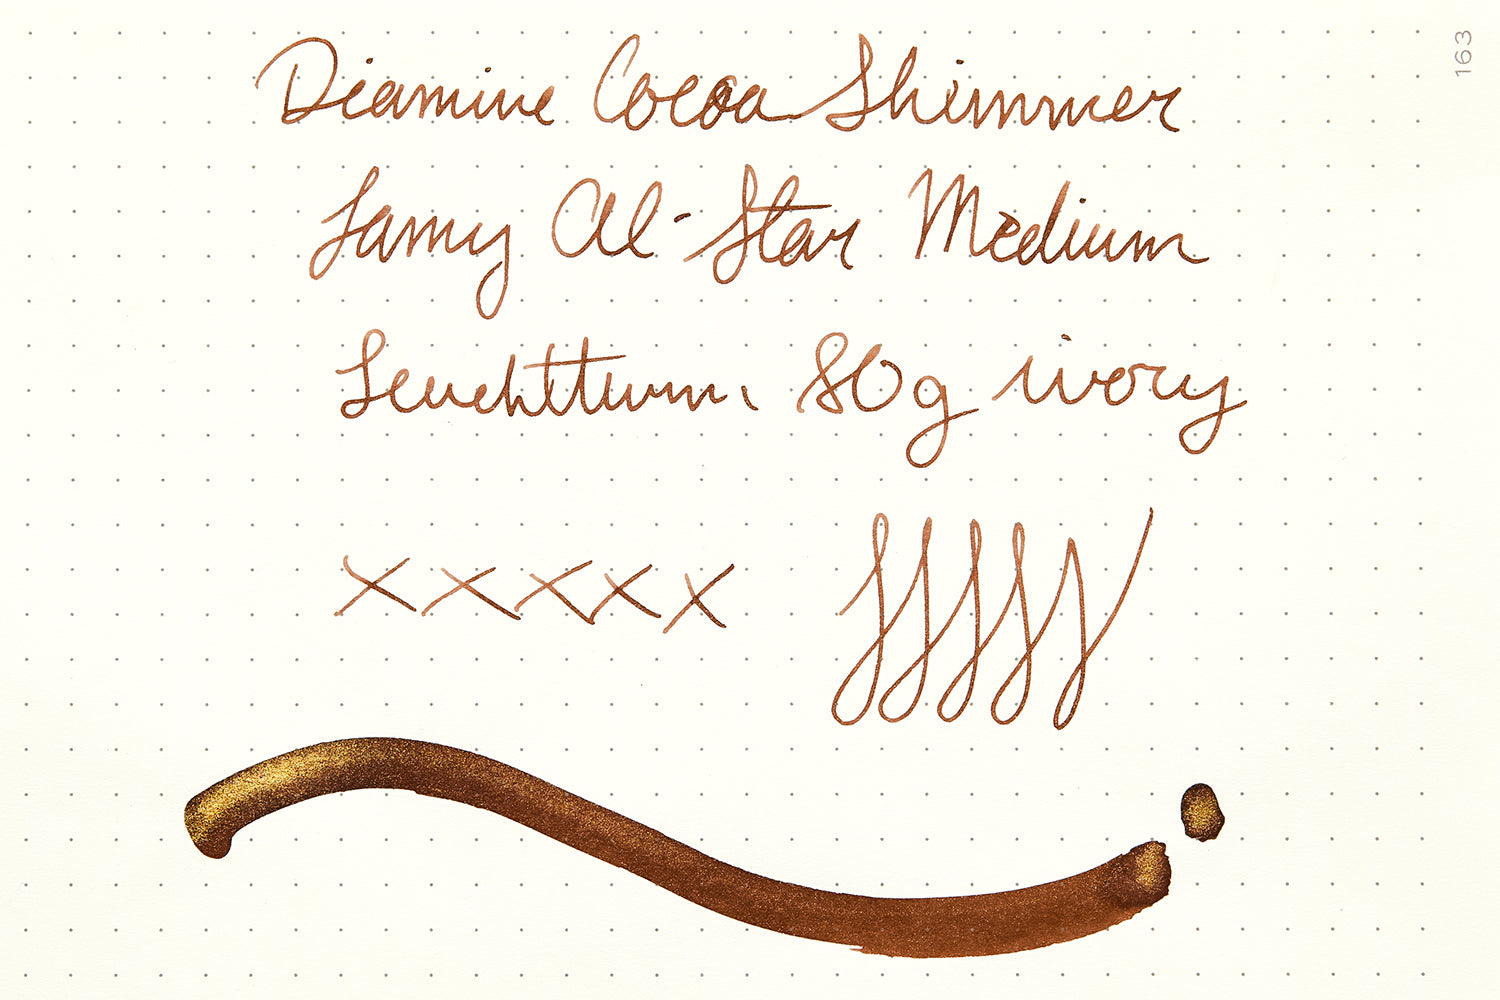 163
Diamine Cocoa Shimmer
Lamy Al-Star Medium
Leuchtturm, 80g ivory
xxxxx